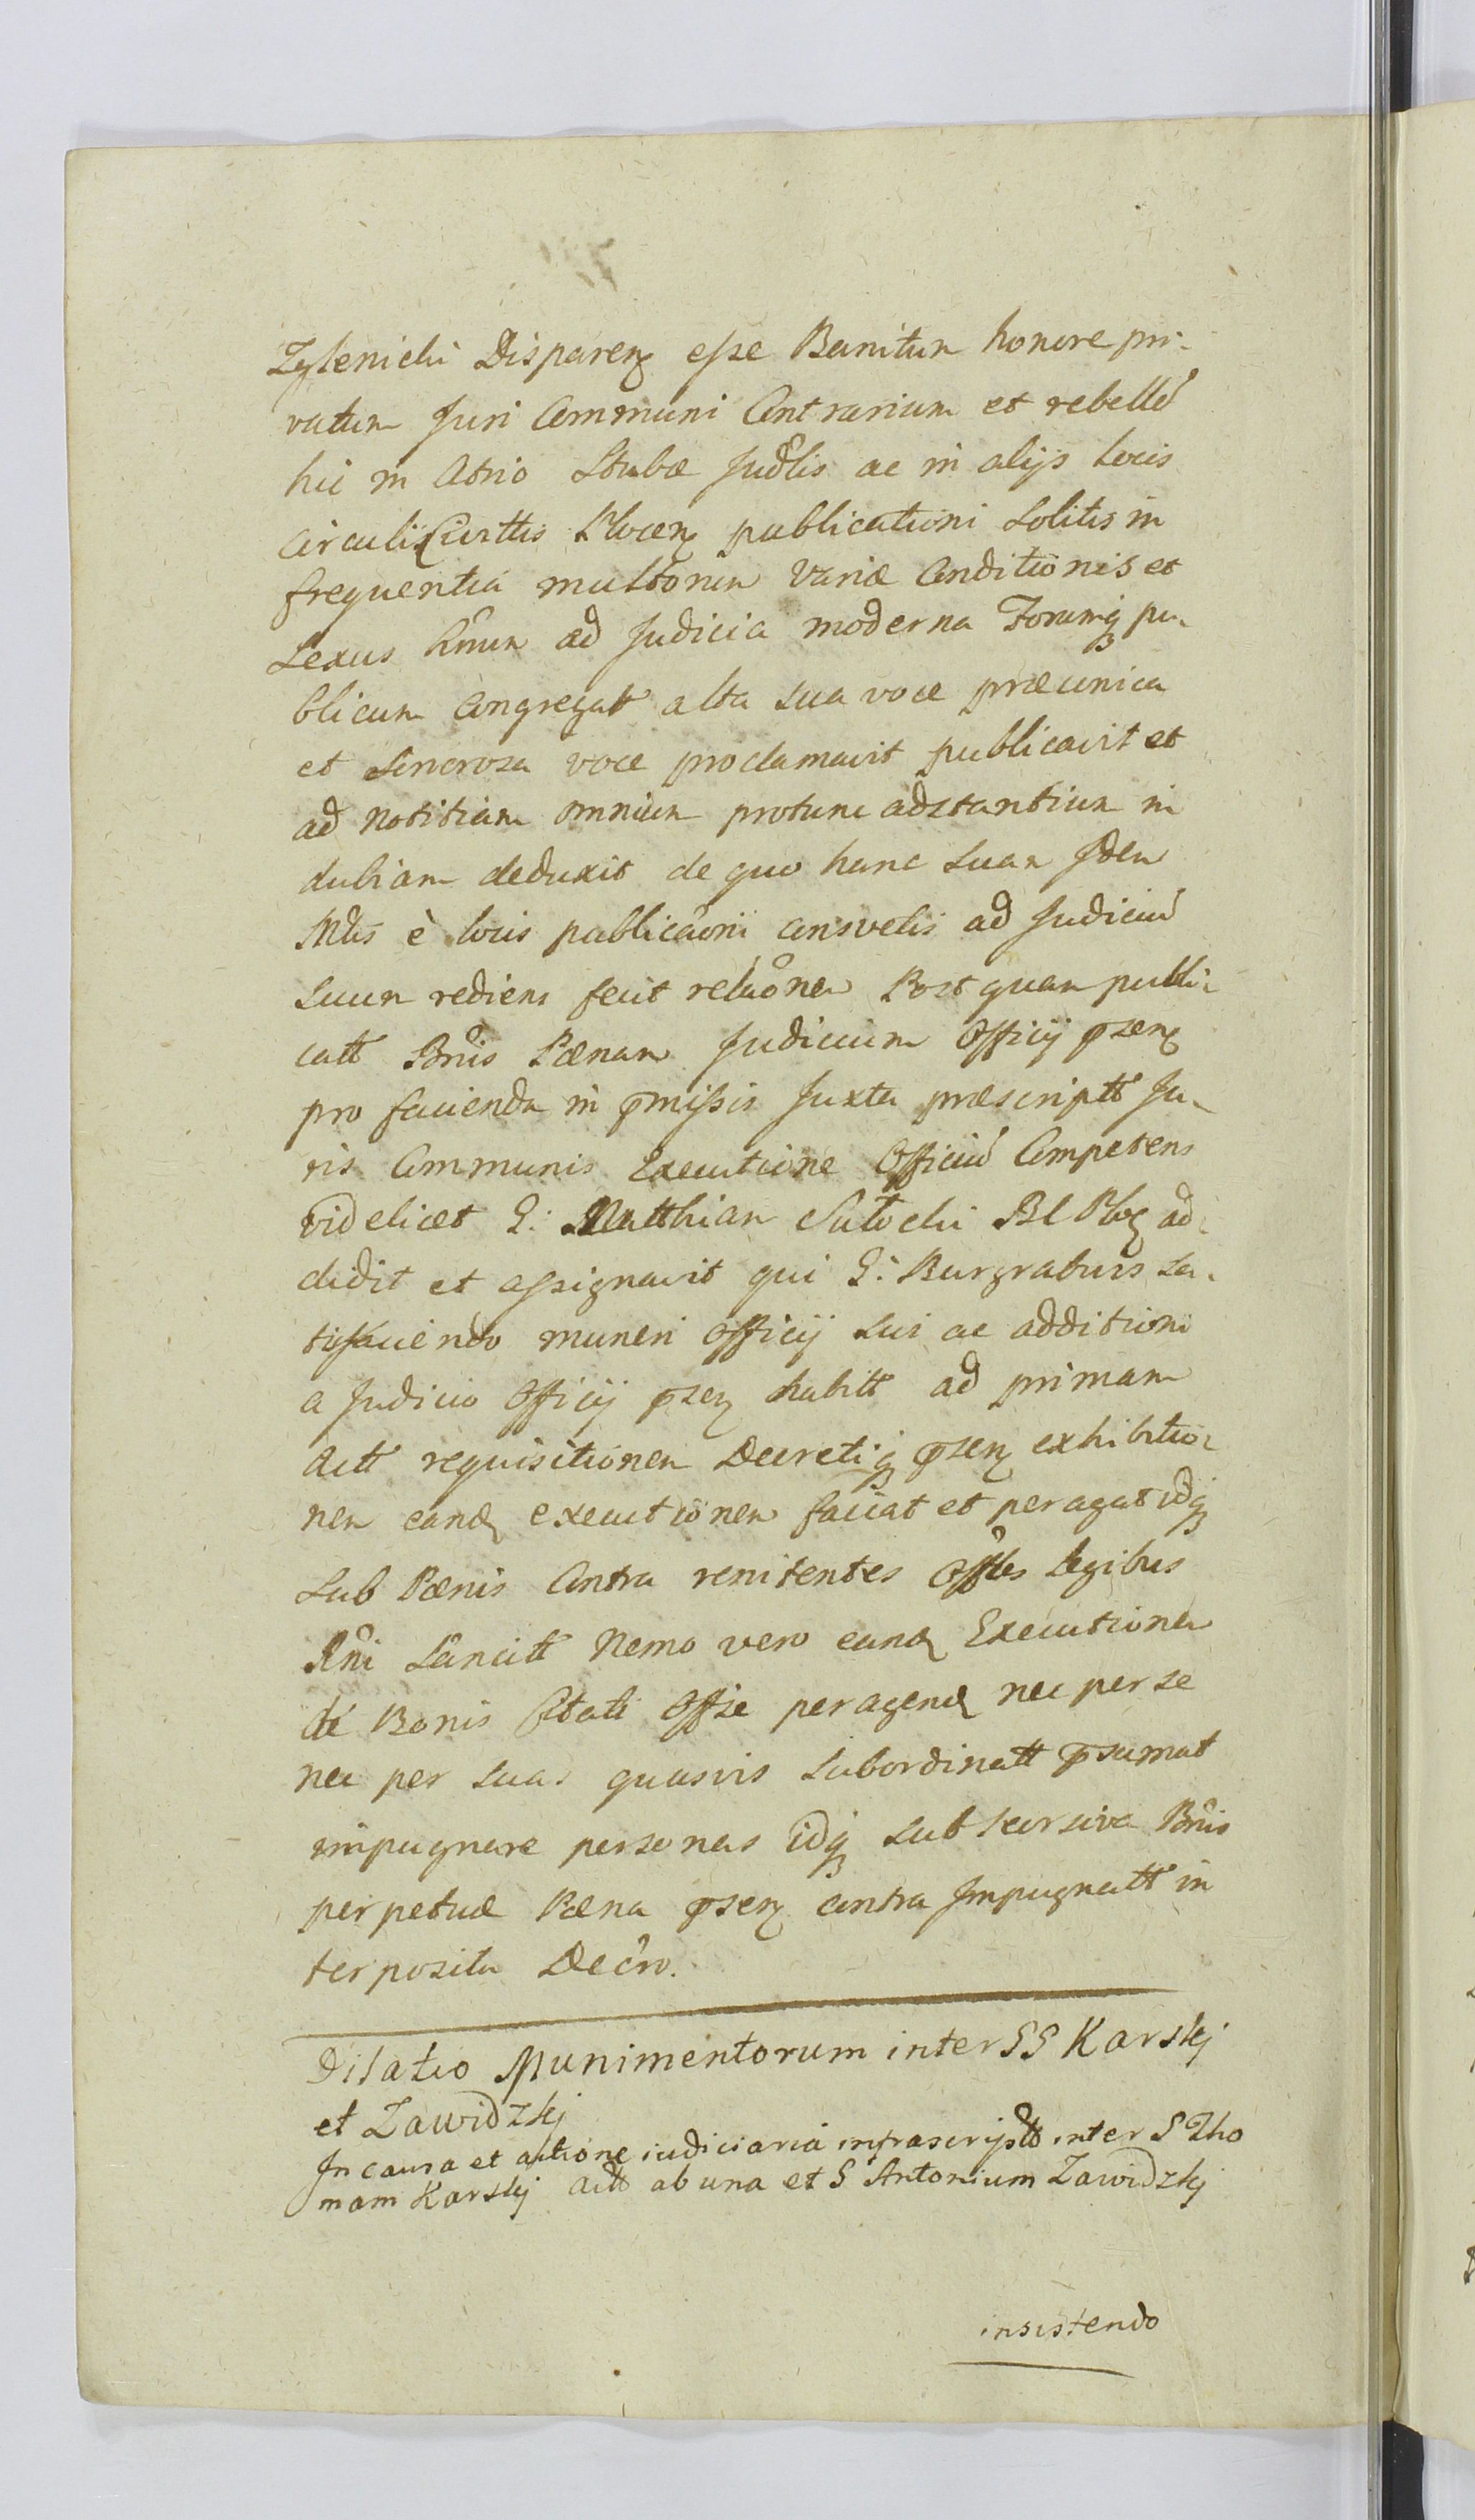 Zglenicki Disparen esse Banitum honore pri-
vatum Juri Communi Contrarium et rebellem
hic in Atrio Stubæ Judlis ac in alijs locis
Circuli Civittis Plocen publicationi solitis in
frequentia multorum Variæ Conditionis et
Sexus hnum ad Judicia moderna Forumq pu-
blicum Congregatt alta sua voce præconica
et Sonorosa voce proclamavit publicavit et
ad Notitiam omnium protunc adstantium in
dubiam deduxit de quo hanc suam Idem
Mtlis è locis publicaoni consvetis ad Judicium
suum rediens fecit relaonem Post quam publi-
catt Bnis Pænam Judicium Officij psen
pro facienda in pmissis Juxta præscriptt Ju-
ris Communis Executione Officiu Competens
videlicet G: Matthiam Sutocki BL Ploc ad-
didit et assignavit qui G: Burgrabius sa-
tisfaciendo muneri Officij sui ac additioni
a Judicio Officij psen habitt ad primam
Actt requisitionem Decretiq psen exhibitio-
nem eand executionem faciat et peragat idq
sub Pænis Contra renitentes Offles legibus
Rni Sancitt Nemo vero eand Executionem
de Bonis Citati Offse peragend nec per se
nec per suas quasvis subordinatt psumat
impugnare personas idq sub seorsiva Bnis
perpetuæ Pæna psen contra Impugnatt in
terposita Decro.
Dilatio Munimentorum inter GG Karskj
et Zawidzkj
In causa et actione iudiciaria infrascriptt inter G Tho
mam Karskj Actt ab una et G Antonium Zawidzkj
insistendo